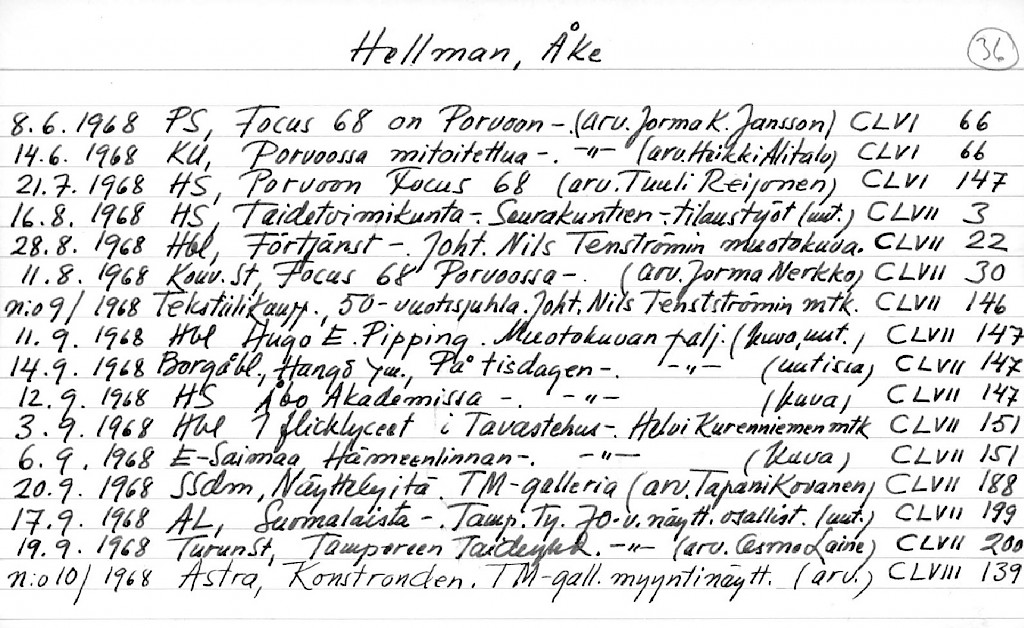 Hellman, Åke
36
8.6.1968 PS, Focus 68 on Porvoon -. (arv. Jorma K. Jansson) CLVI 66
14.6.1968 KU, Porvoossa mitoitettua -. -"- (arv. Heikki Alitalo) CLVI 66
21.7.1968 HS, Porvoon Focus 68 (arv. Tuuli Reijonen) CLVI 147
16.8.1968 HS, Taidetoimikunta -. Seurakuntien - tilaustyöt (uut.) CLVII 3
28.8.1968 Hbl, Förtjänst -. Joht. Nils Tenströmin muotokuva. CLVII 22
11.8.1968 Kouv. St, Focus 68 Porvoossa -. (arv. Jorma Nerkko) CLVII 30
n:o 9/ 1968 Tekstiilikaupp., 50-vuotisjuhla. Joht. Nils Tenstströmin mtk. CLVII 146
11.9.1968 Hbl Hugo E. Pipping. Muotokuvan palj. (kuva, uut.) CLVII 147
14.9.1968 Borgåbl., Hangö ym., På tisdagen -. -"- (uutisia) CLVII 147
12.9.1968 HS Åbo Akademissa -. -"- (kuva) CLVII 147
3.9.1968 Hbl I flicklyceet i Tavastehus -. Helvi Kurenniemen mtk CLVII 151
6.9.1968 E-Saimaa Hämeenlinnan -. -"- (kuva) CLVII 151
20.9.1968 SSdm, Näyttelyitä. TM-galleria (arv. Tapani Kovanen) CLVII 188
17.9.1968 AL, Suomalaista -. Tamp. ty. 70-v. näytt. osallist. (uut.) CLVII 199
19.9.1968 TurunSt, Tampereen -"- (arv. Osmo Laine) CLVII 200
n:o 10/ 1968 Astra, Konstronden. TM-gall. myyntinäytt. (arv.) CLVIII 139